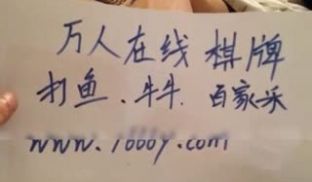 万人在线棋牌
打鱼、牛牛.百家乐
www.1000y.com